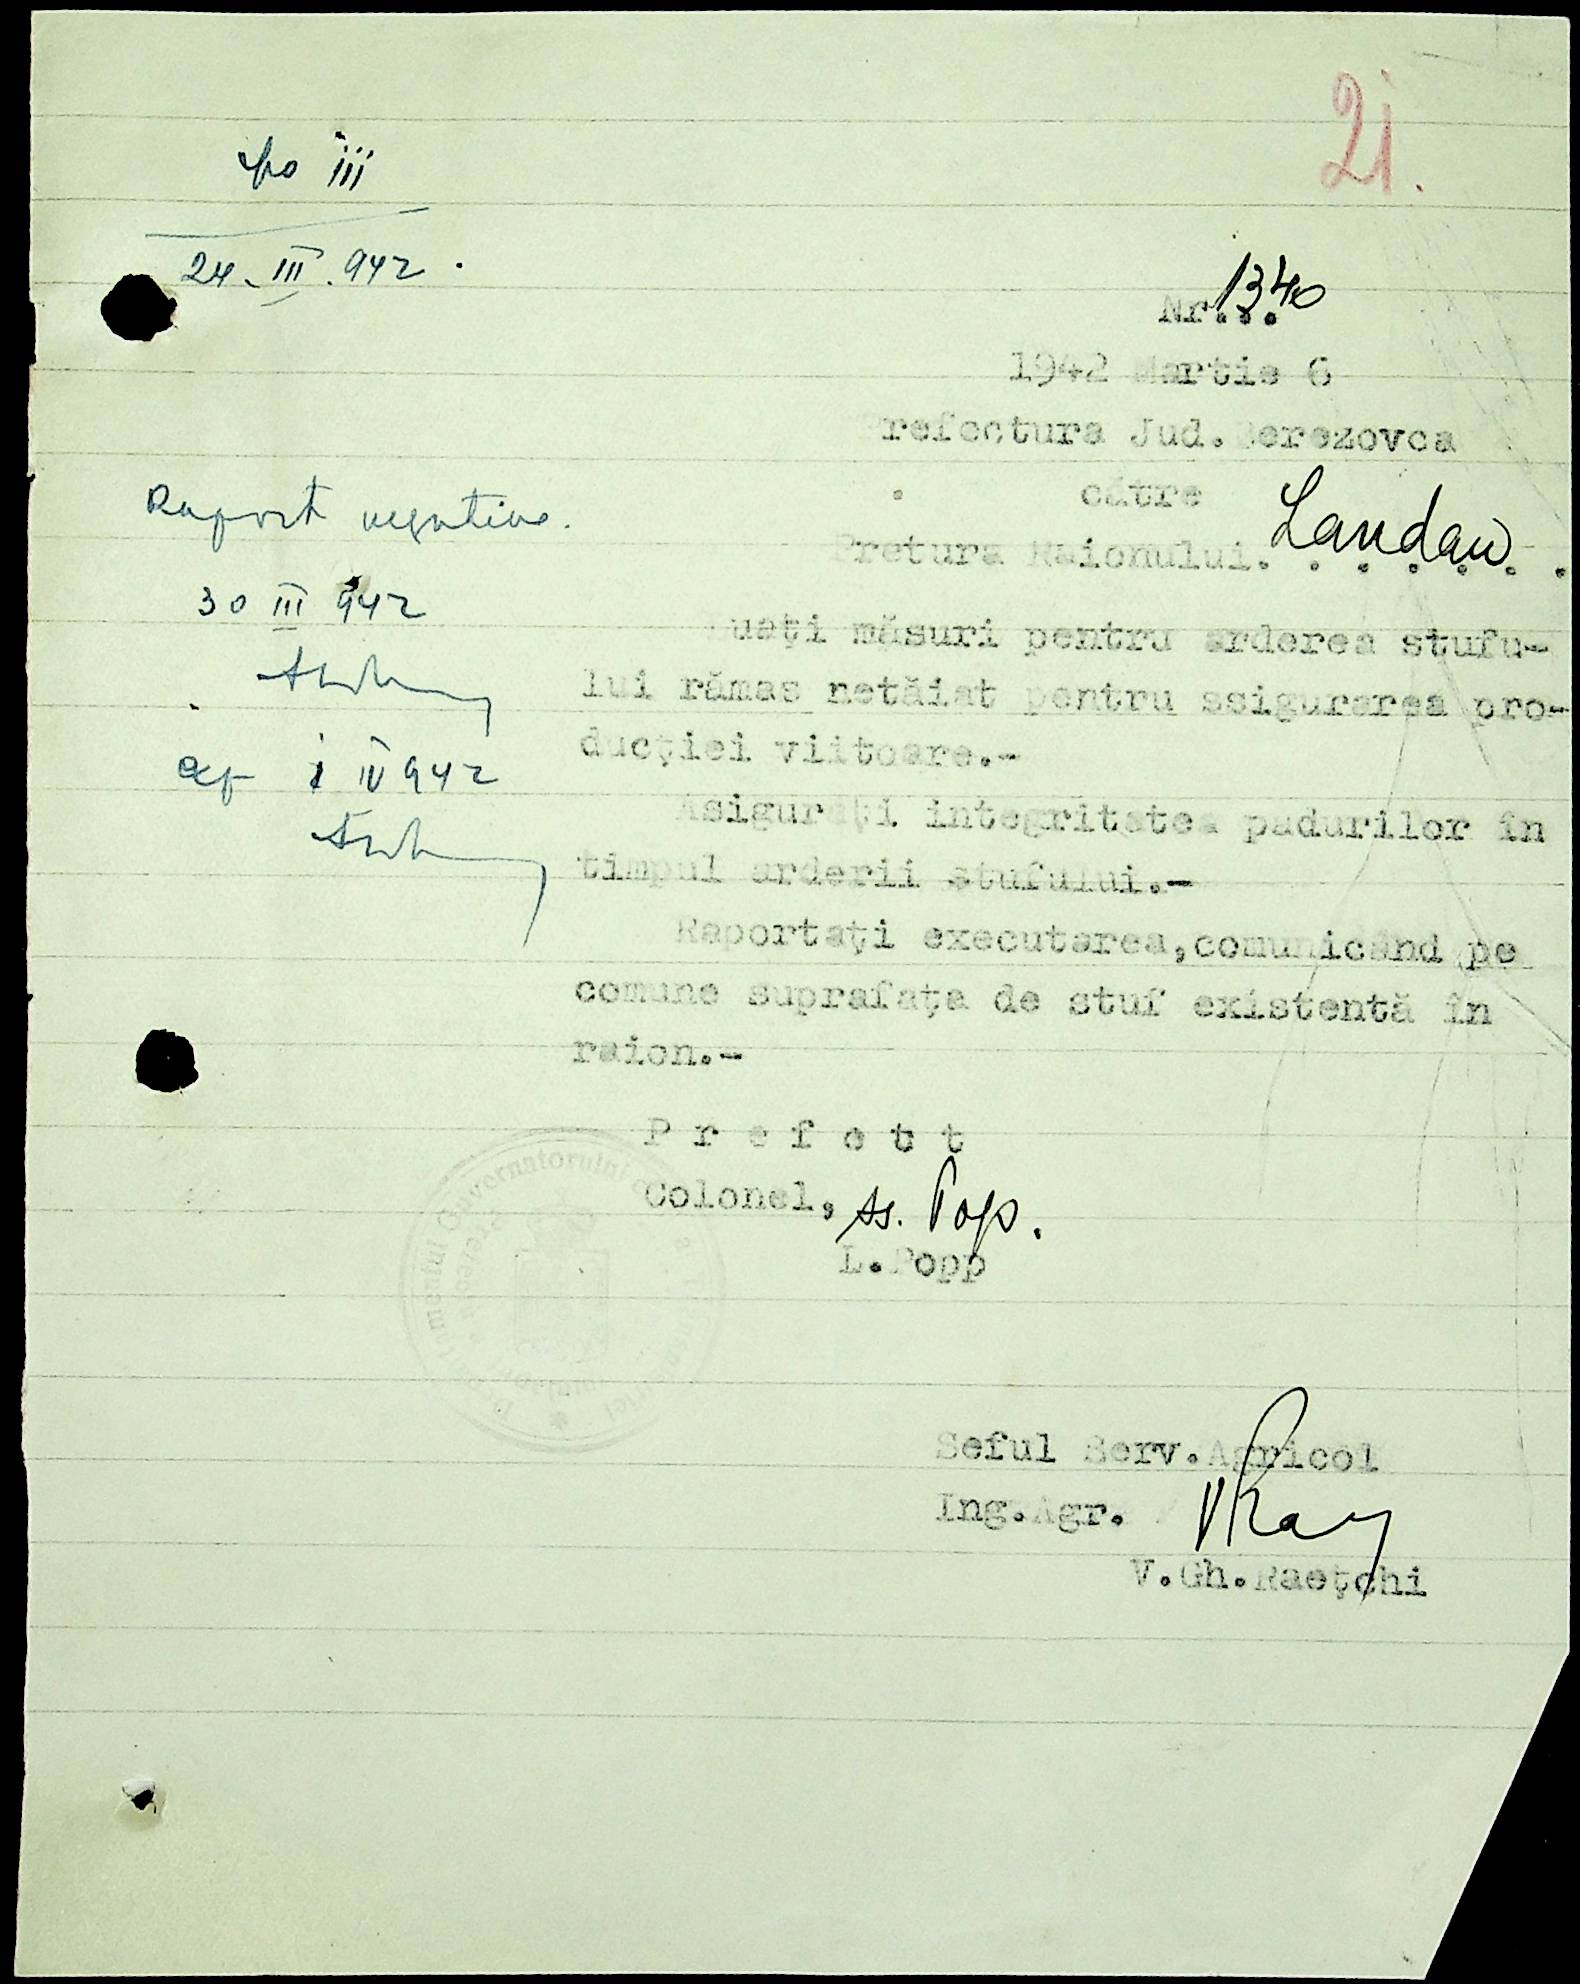 21.
iii
24. III. 942.
Nr... 1340
1942 Martie 6
Prefectura Jud. Berezovca
către
Pretura Raionului. Landau. . .
Raport negativ.
30 III 942
1 IV 942
uați măsuri pentru arderea stufu-
lui rămas netăiat pentru asigurarea pro-
ducției viitoare.-
Asigurați integritatea padurilor în
timpul arderii stufului.-
Raportați executarea,comunicând pe
comune suprafața de stuf existentă în
raion.-
P r e f e c t
Colonel, ss. Pop.
L.Popp
Seful Serv.Agricol
Ing.Agr.
V.Gh.Raețchi